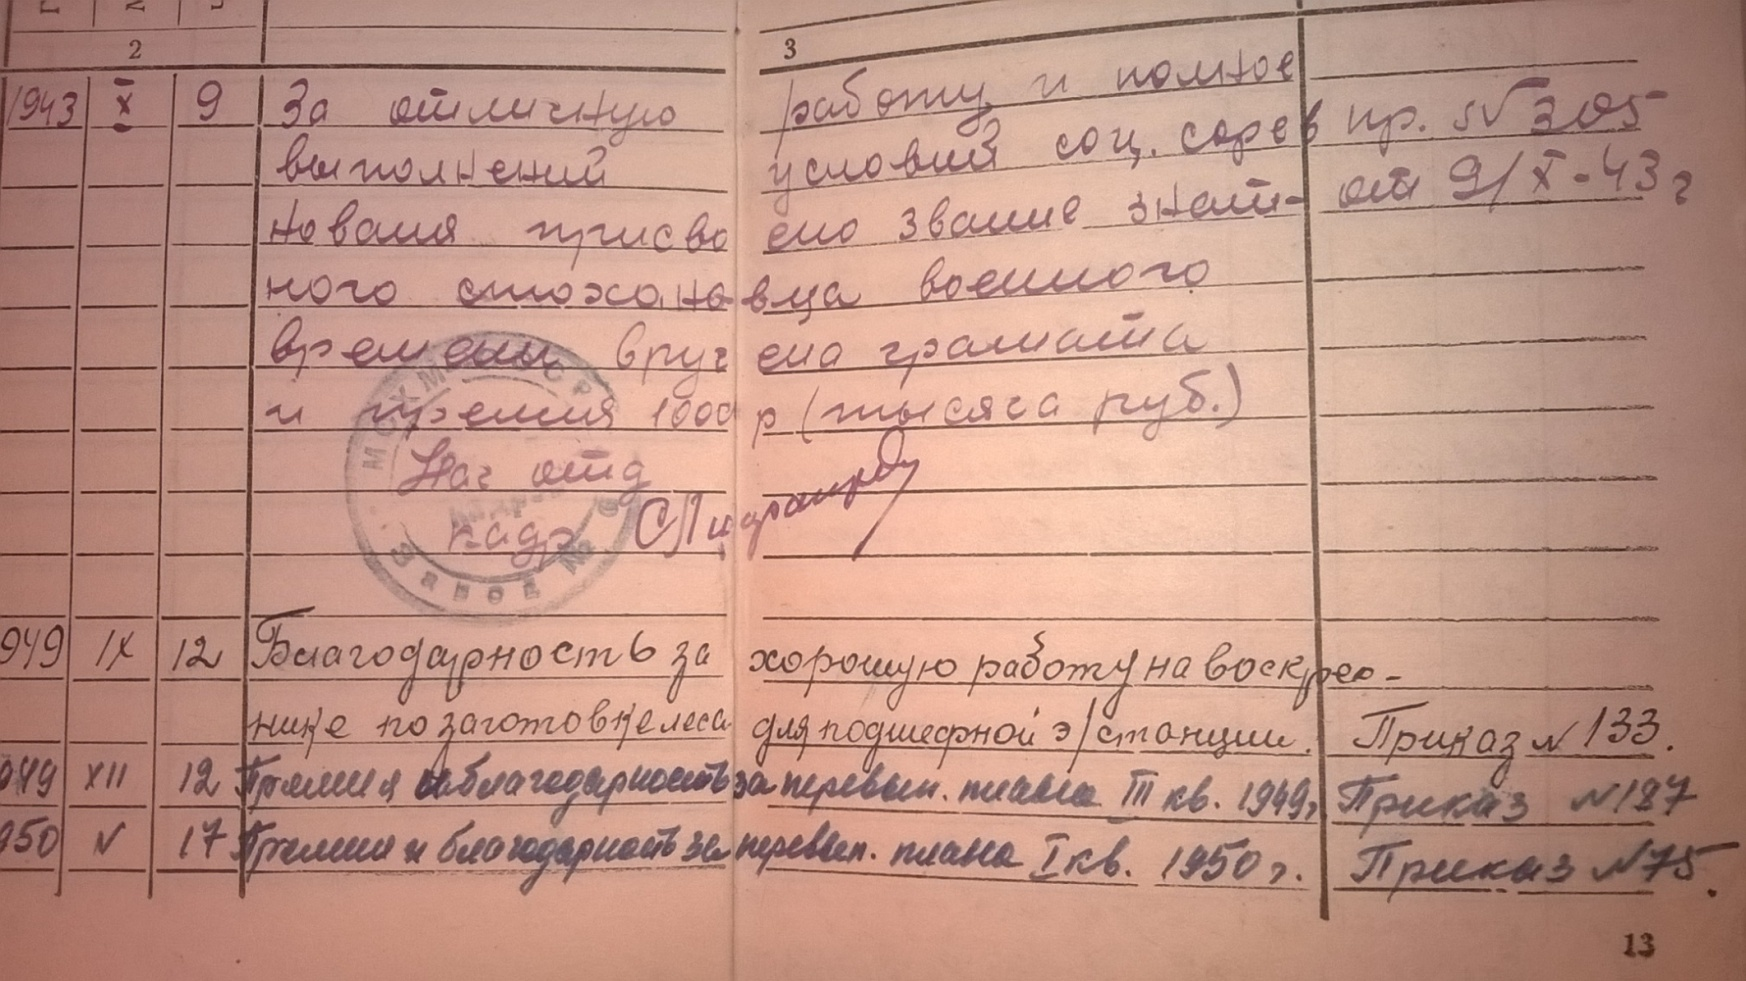 2 3
1943 X 9 За отличную работу и полное
выполнений условий соц. сорев пр. № 305
нования присвоено звание знат- от 9/X-43 г
ного стохановца военного
времени вручена грамота
и премия 1000 р (тысяча руб.)
Нач отд
кадр
Завод №
949 IX 12 Благодарность за хорошую работу на воскрес-
нике по заготовке леса для подшефной э/станции. Приказ № 133.
949 XII 12 Премия и благодарность за перевып. плана III кв. 1949г. Приказ № 187
950 V 17 Премия и благодарность за перевып. плана I кв. 1950 г. Приказ № 75.
13